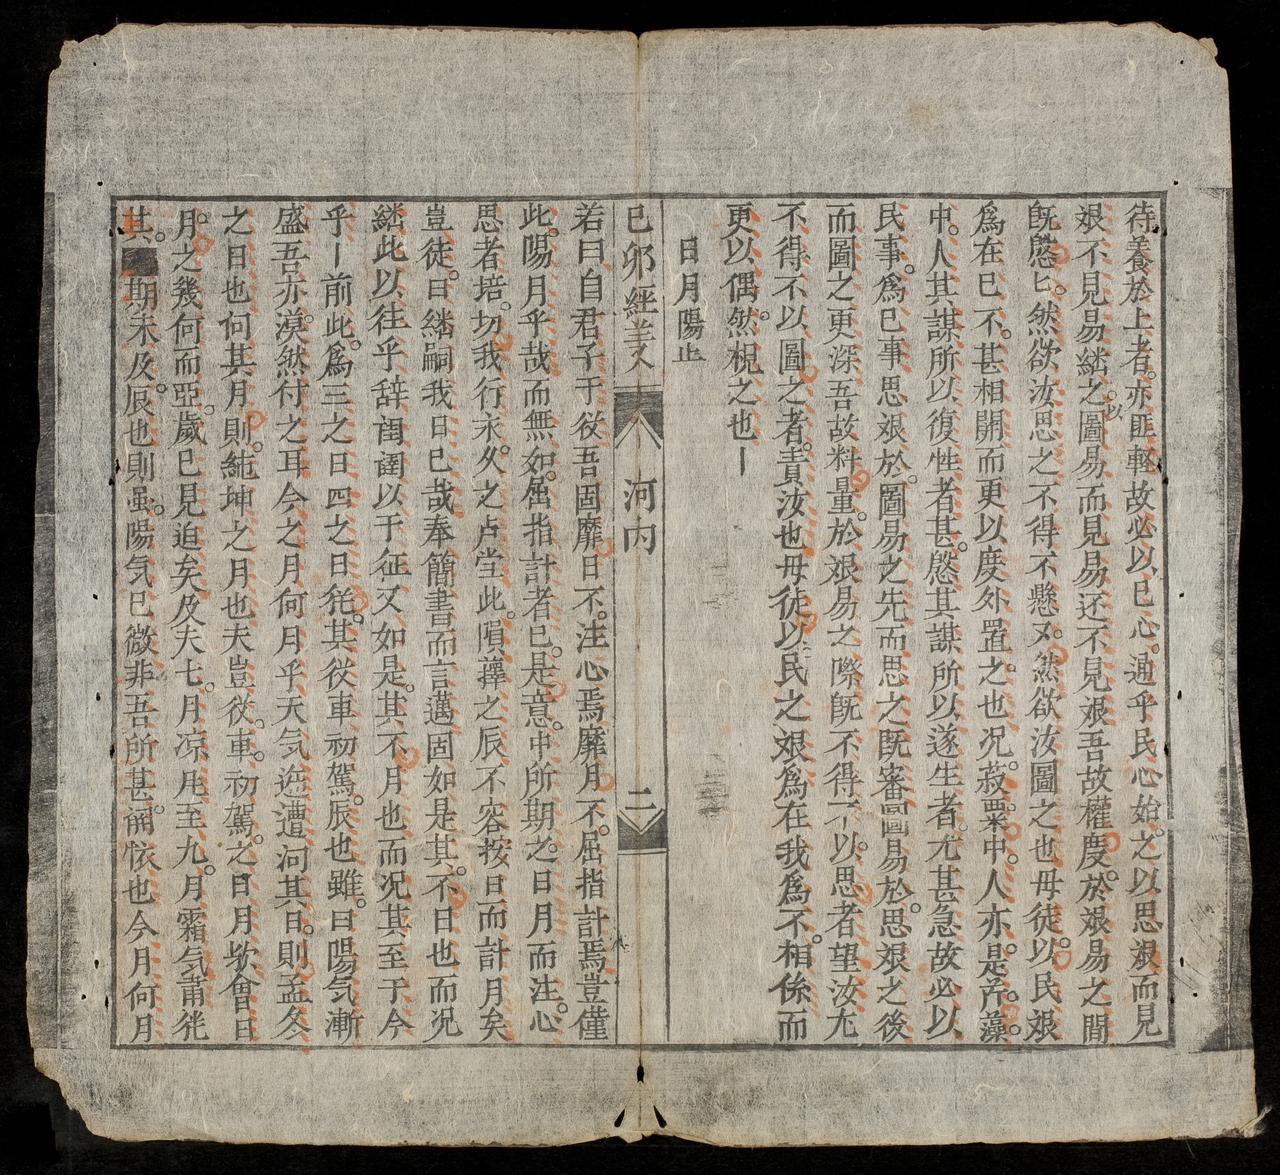 待養於上者亦匪輕故必以已心通乎民心始之以思艰而見
艰不見易繼之以圖易而見易还不見艰吾故權度於艰易之間
既慇匕然欲汝思之不得不懸又然欲汝圖之也毋徒以民艰
為在已不甚相開而更以度外置之也况菽粟中人亦是芹藻
中人其謀所以復性者甚慇其謀所以遂生者尤甚急故必以
民事為已事思艰於圖易之先而思之既審圖易於思艰之後
而圖之更深吾故料量於艰易之際既不得不以思者望汝尢
不得不以圖之者責汝也毋徒以民之艰為在我為不相係而
更以偶然視之也
日月陽止
己卯經義 河内 二
若曰自君子于役吾固靡日不注心焉靡月不屈指計焉豈僅
此陽月乎哉而無如屈指計者已是意中所期之日月而注心
思者培切我行永久之卢堂此隕蘀之辰不容按日而計月矣
豈徒曰繼嗣我日已哉奉簡書而言邁固如是其不日也而况
繼此以往乎辞闺闥以于征又如是其不月也而况其至于今
乎前此為三之日四之日徃其從車初駕辰也雖曰陽气漸
盛吾亦漠然付之耳今之月何月乎天气遊遭河其日則孟冬
之日也何其月則純坤之月也夫豈從車初駕之日月欤會日
月之幾何而亞歲已見迫矣及夫七月凉甩至九月霜气莆徃
其期未及辰也則虽陽气已微非吾所甚痛恢也今月何月